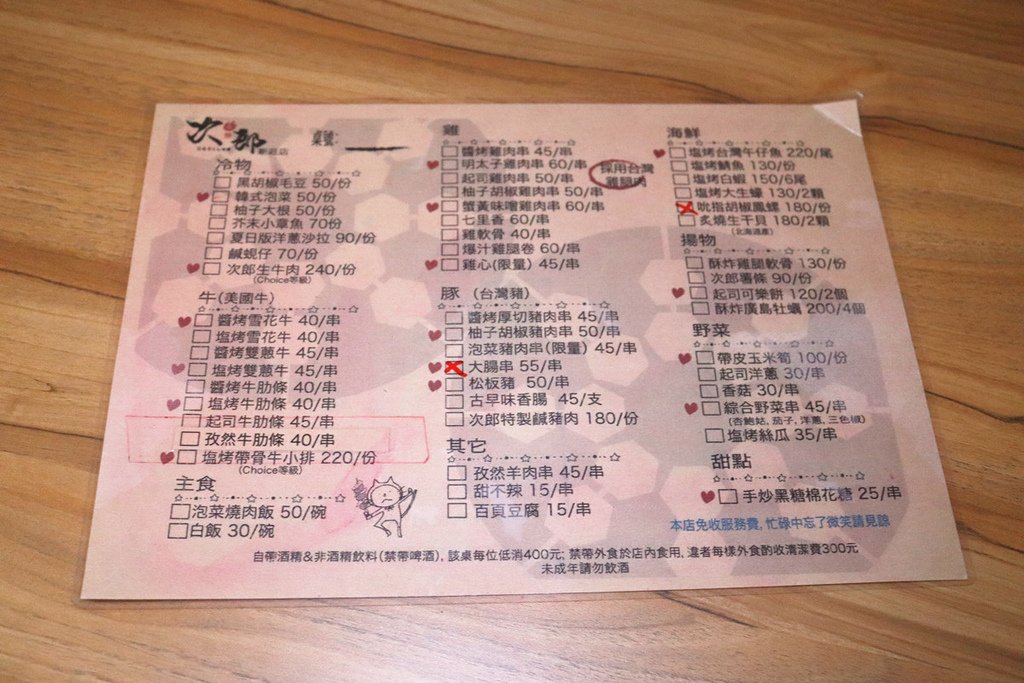 次郎
新莊店
桌號:
冷物
黑胡椒毛豆 50/份
韓式泡菜 50/份
柚子大根 50/份
芥末小章魚 70/份
夏日版洋蔥沙拉 90/份
鹹蜆仔 70/份
次郎生牛肉 240/份
(Choice等級)
牛(美國牛)
醬烤雪花牛 40/串
塩烤雪花牛 40/串
醬烤雙蔥牛 45/串
塩烤雙蔥牛 45/串
醬烤牛肋條 40/串
塩烤牛肋條 40/串
起司牛肋條 45/串
孜然牛肋條 40/串
塩烤帶骨牛小排 220/份
(Choice等級)
主食
泡菜燒肉飯 50/碗
白飯 30/碗
雞
醬烤雞肉串 45/串
明太子雞肉串 60/串
起司雞肉串 50/串
柚子胡椒雞肉串 50/串
蟹黃味噌雞肉串 60/串
七里香 60/串
雞軟骨 40/串
爆汁雞腿卷 60/串
雞心(限量) 45/串
採用台灣
雞腿肉
豚 (台灣豬)
醬烤厚切豬肉串 45/串
柚子胡椒豬肉串 50/串
泡菜豬肉串(限量) 45/串
大腸串 55/串
松板豬 50/串
古早味香腸 45/支
次郎特製鹹豬肉 180/份
其它
孜然羊肉串 45/串
甜不辣 15/串
百頁豆腐 15/串
海鮮
塩烤台灣午仔魚 220/尾
塩烤鯖魚 130/份
塩烤白蝦 150/6尾
塩烤大生蠔 130/2顆
吮指胡椒鳳螺 180/份
炙燒生干貝 180/2顆
(北海道產)
揚物
酥炸雞腿軟骨 130/份
次郎薯條 90/份
起司可樂餅 120/2個
酥炸廣島牡蠣 200/4個
野菜
帶皮玉米筍 100/份
起司洋蔥 30/串
香菇 30/串
綜合野菜串 45/串
(杏鮑菇, 茄子, 洋蔥, 三色椒)
塩烤絲瓜 35/串
甜點
手炒黑糖棉花糖 25/串
本店免收服務費, 忙碌中忘了微笑請見諒
自帶酒精&非酒精飲料(禁帶啤酒), 該桌每位低消400元; 禁帶外食於店內食用, 違者每樣外食酌收清潔費300元
未成年請勿飲酒